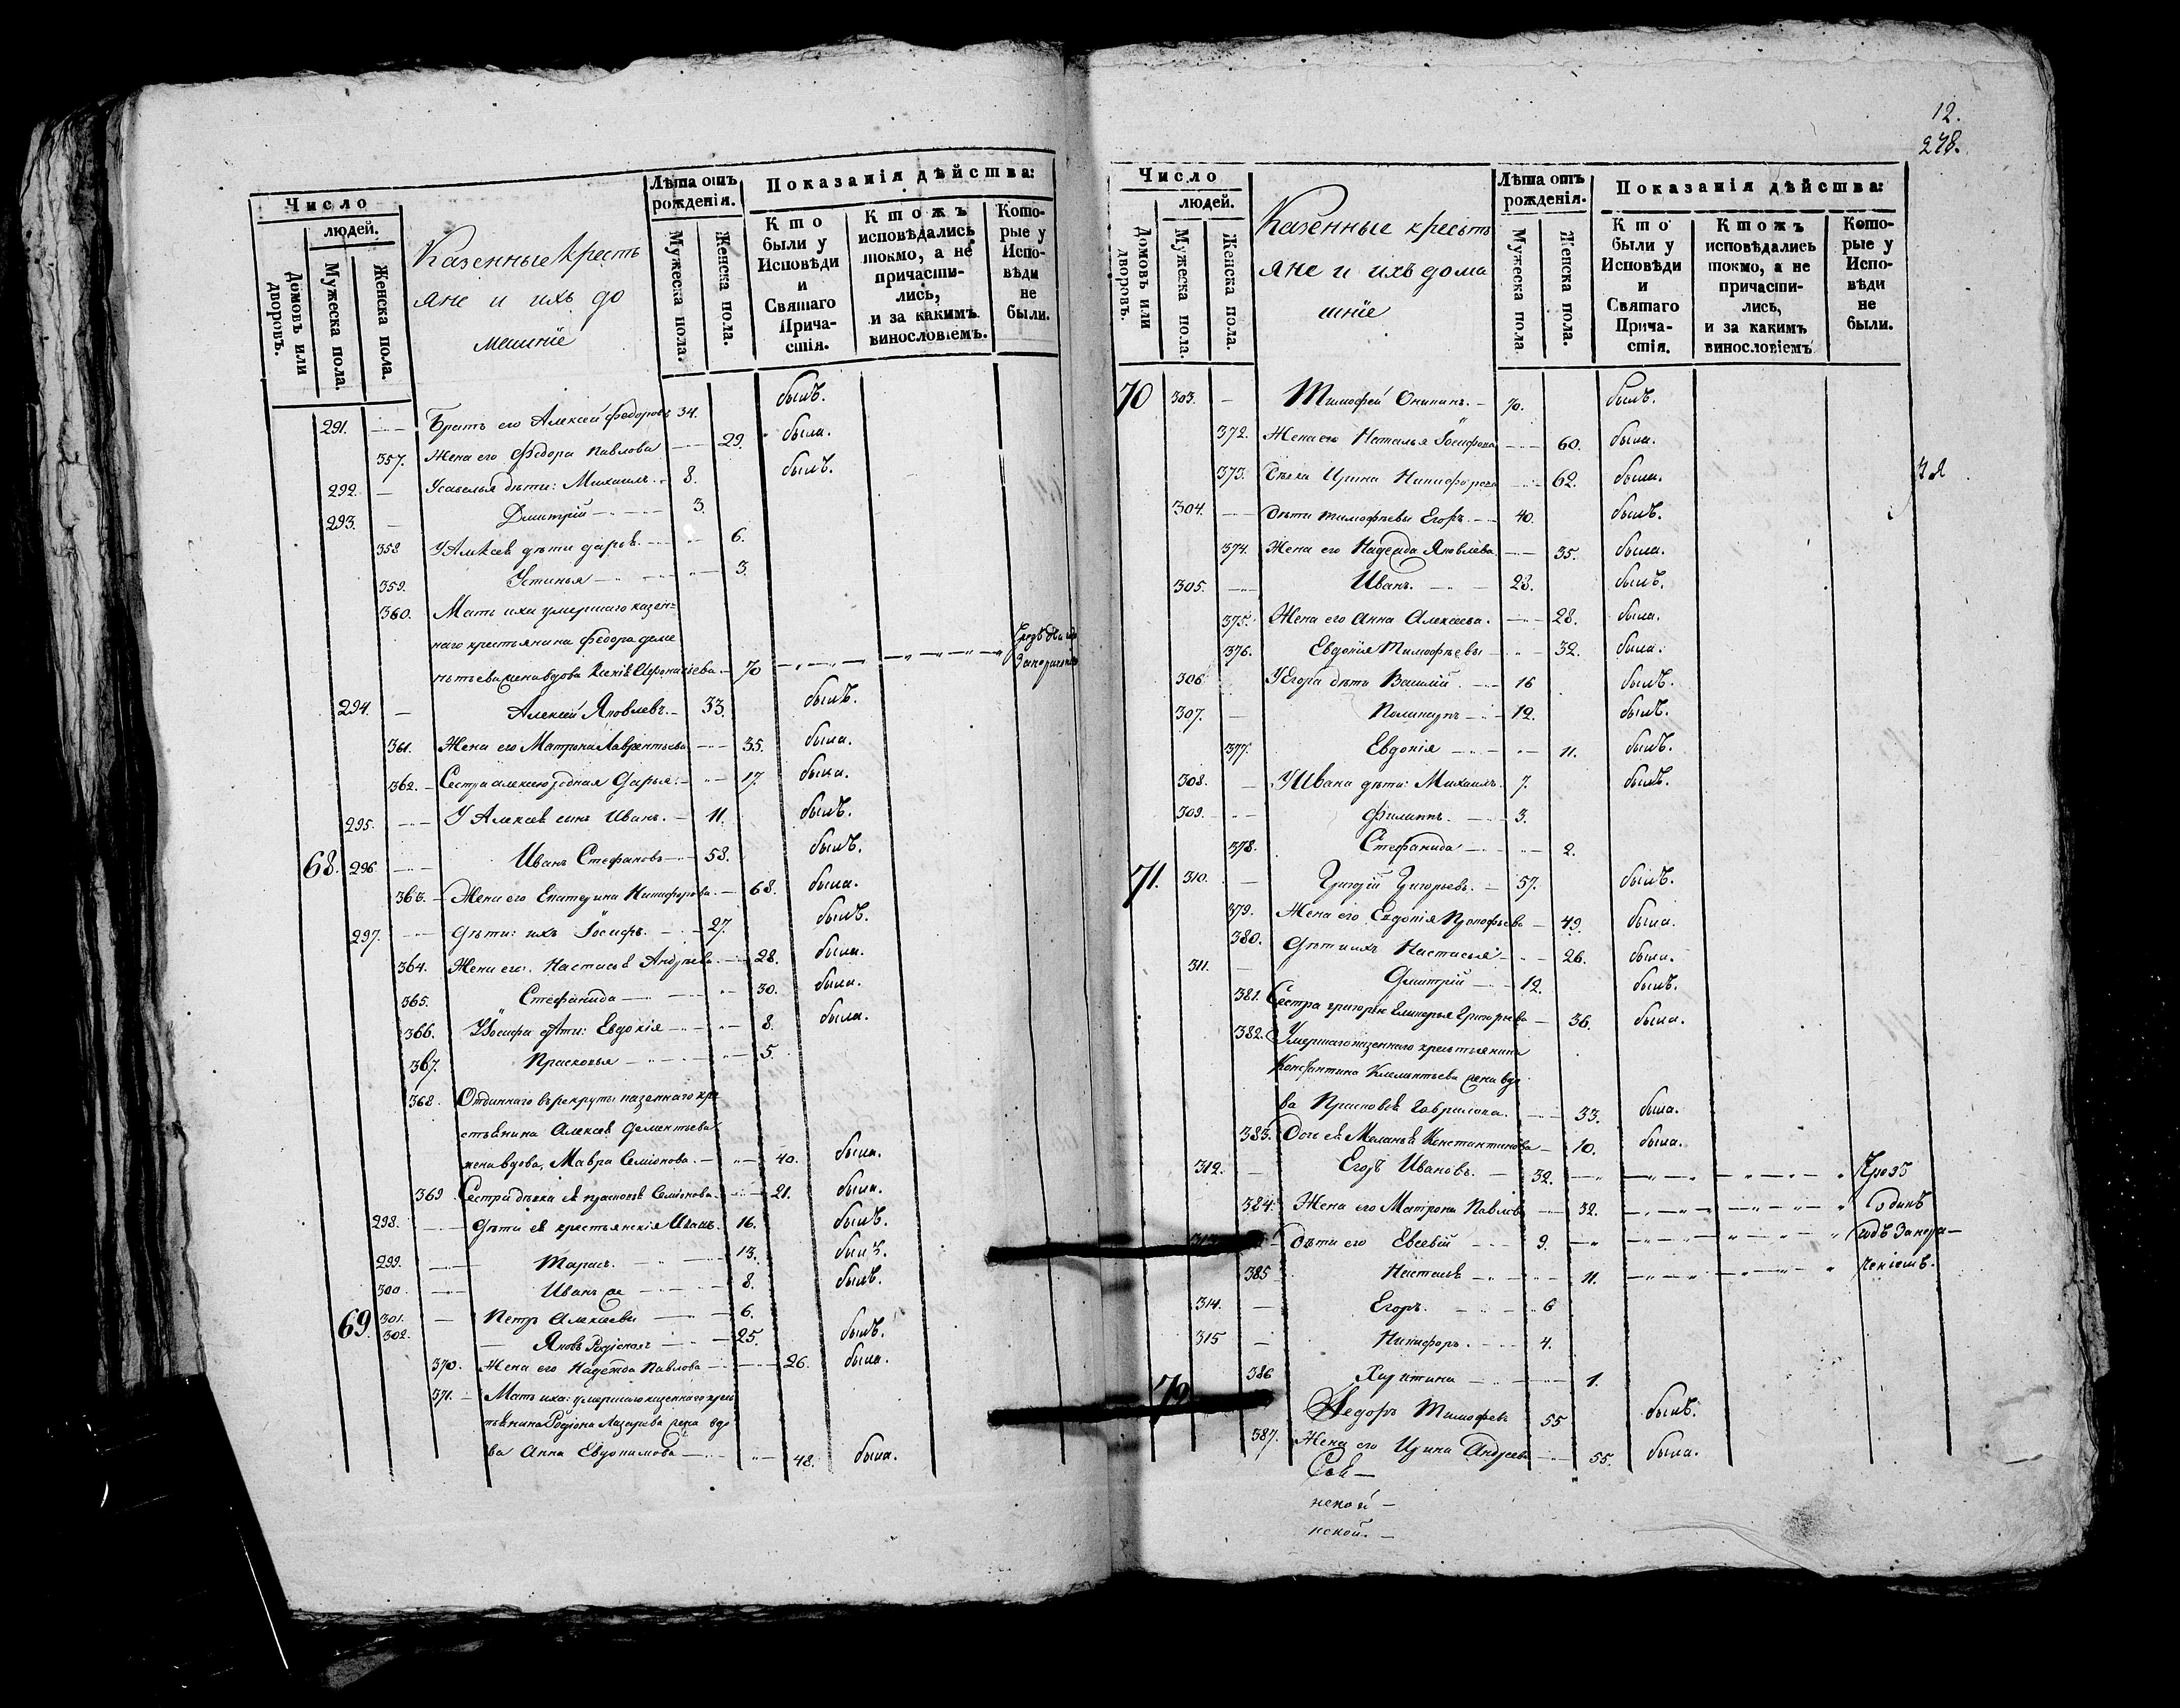 Число
людей.
Домовъ или дворовъ.
Мужеска пола.
Женска пола.
Казенные кресть
яне и ихъ до
машніе
Лѣта отъ рожденія.
Мужеска пола.
Женска пола.
Показанія дѣйства:
Кто были у Исповѣди и Святаго Причастія.
Ктожъ исповѣдались токмо, а не причастились, и за какимъ винословіемъ.
Которые у Исповѣди не были.
291. Братъ его Алексей Федоровъ 34. былъ.
357. Жена его Федора Павлова 29. была.
292. Усавелья дѣти: Михаилъ 8. былъ.
293. Дмитрій 3.
358 УАлѣксея дѣти дарья 6.
359. Устинья 3.
360. Мать ихъ умершаго казен=
наго крестьянина Федора деме
нтьева жена вдова 70
294. Алексей Яковлевъ 33. былъ.
361. Жена его Матрона Лаврентьева 35. была.
362. Сестра алексею родная Дарья 17. была.
295. У Алексея сынъ Иванъ. 11. былъ.
68. 296. Иванъ Стефановъ 58. былъ.
363. Жена его Екатерина Никифорова. 68. была.
297. Дѣти: ихъ Іосифъ. 27. былъ.
364. Жена его. Настасья Андреева. 28. была.
365. Стефанида 30. была.
366. УІосифа дѣти: Евдокія 8. была.
367. Прасковья 5.
368. Отданнаго въ рекруты казеннаго кре
стьянина Алексея Дементьева
жена вдова, Мавра Семіонова. 40. была.
369 Сестра дѣвка ея прасковья Семіонова 21. была.
298. Дѣти ея крестьянскія Иванъ. 16. былъ.
299. Тарасъ. 13. былъ.
300. Иванъ же 8. былъ.
301. Петръ Алексеевы 6.
69. 302. Яковъ Родіоновъ 25. былъ.
370. Жена его Надежда Павлова 26. была.
371. Мать ихъ: умершаго казеннаго крес
тьянина Родіона Лазарева жена вдо
ва Анна Евдокимова 48. была.
12.
278.
Число
людей.
Домовъ или дворовъ.
Мужеска пола.
Женска пола.
Казенные кресть
яне и ихъ дома
шніе
Лѣта отъ рожденія.
Мужеска пола
Женска пола.
Показанія дѣйства:
Кто были у Исповѣди и Святаго Причастія.
Ктожъ исповѣдались токмо, а не причастились, и за какимъ винословіемъ
Которые у Исповѣди не были.
70 303. Тимофей Оникинъ. 70. былъ.
372. Жена его Наталья Іосифова 60. была.
373. Дѣвка Ирина Никифорова 62. была.
304. Дѣти тимофѣевы Егоръ. 40. былъ.
374. Жена его Надежда Яковлева. 35. была.
305. Иванъ. 28. былъ.
375. Жена его Анна Алексеева. 28. была.
376. Евдокія Тимофѣевы 32. была.
306 УЕгора дѣти Василій 16 былъ.
307. Поликарпъ 12. былъ.
377. Евдокія 11. былъ.
308. УИвана дѣти: Михаилъ. 7. былъ.
309. Филиппъ. 3.
378. Стефанида 2.
71. 310. Григорій Григорьевъ. 57. былъ.
379. Жена его Евдокія Прокофьева 49. была.
380. Дѣти ихъ Настасья 26. была.
311. Дмитрій 12. былъ.
381. Сестра григорью Гликерья Григорьева 36. была.
382. Умершаго казеннаго крестьянина
Константина Клементьева жена вдо
ва Прасковья Гаврилова. 53. была.
383. Дочь ея Меланья Константинова 10. была.
312. Егоръ Ивановъ. 32. Чрезъ
384. Жена его Матрона Павлова 32. одинъ
Дѣти его Евсевій 9. годъ Запра—
385 Настасья 11. ченіемъ.
314. Егоръ. 6
315 Никифоръ. 4.
386 Харитина 1.
72 Федоръ Тимофеевъ 55 былъ.
387. Жена его Ирина Андреева 55. была.